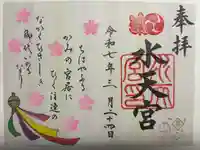 奉拝
水天宮
令和七年三月二十四日
ちはやふる
かみの宮居に
ひく注連の
ながくひさしき